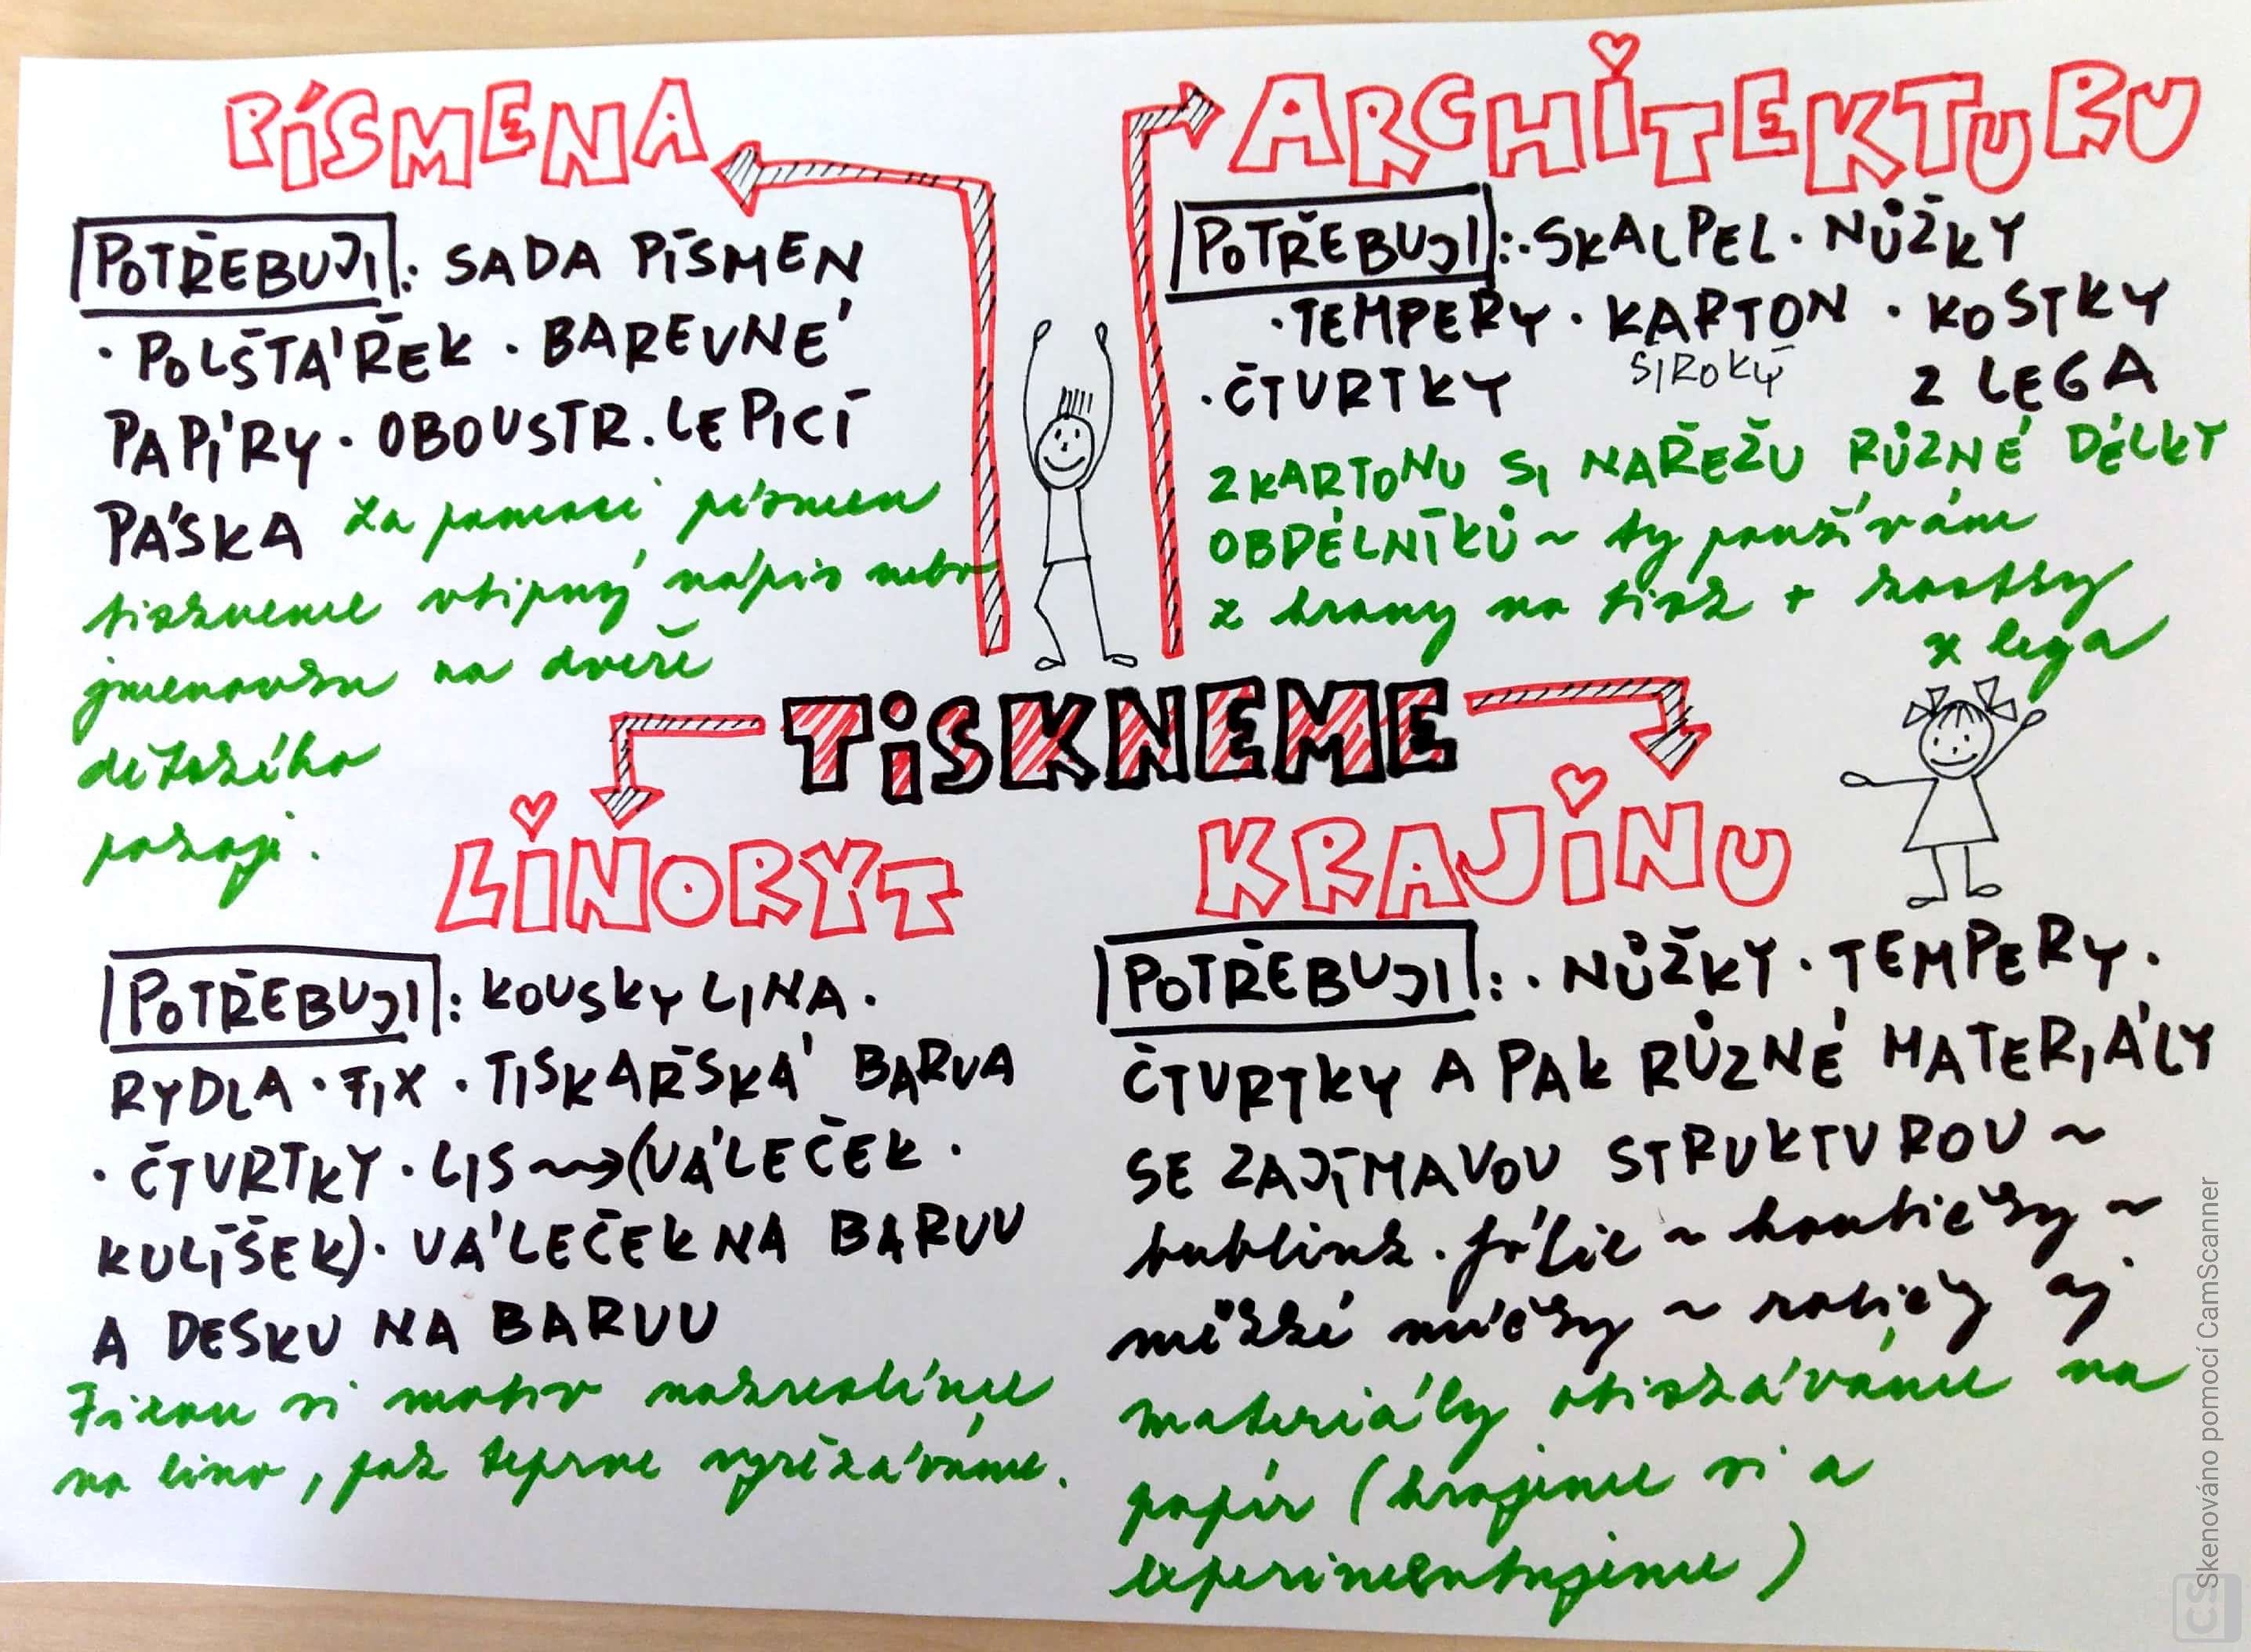 PÍSMENA
POTŘEBUJI: SADA PÍSMEN
· POLŠTÁŘEK · BAREVNÉ
PAPÍRY · OBOUSTR. LEPICÍ
PÁSKA Za pomoci písmen
tiskneme vtipný nápis nebo
jmenovku na dveře
dětského
pokoje.
ARCHITEKTURU
POTŘEBUJI: · SKALPEL · NŮŽKY
· TEMPERY · KARTON · KOSTKY
ŠIROKÝ
· ČTVRTKY Z LEGA
Z KARTONU SI NAŘEŽU RŮZNÉ DÉLKY
OBDÉLNÍKŮ ~ ty používáme
z hrany na tisk + kostky
z lega
TISKNEME
LINORYT
POTŘEBUJI: KOUSKY LINA ·
RYDLA · FIX · TISKAŘSKÁ BARVA
· ČTVRTKY · LIS ~> (VÁLEČEK ·
KULÍŠEK) · VÁLEČEK NA BARVU
A DESKU NA BARVU
Fixou si motiv nakreslíme
na lino, pak teprve vyřezáváme.
KRAJINU
POTŘEBUJI: · NŮŽKY · TEMPERY ·
ČTVRTKY A PAK RŮZNÉ MATERIÁLY
SE ZAJÍMAVOU STRUKTUROU ~
bublink. fólie ~ houbičky ~
měkké míčky ~ roličky aj.
materiály otiskáváme na
papír (hrajeme si a
experimentujeme)
Skenováno pomocí CamScanner
CS